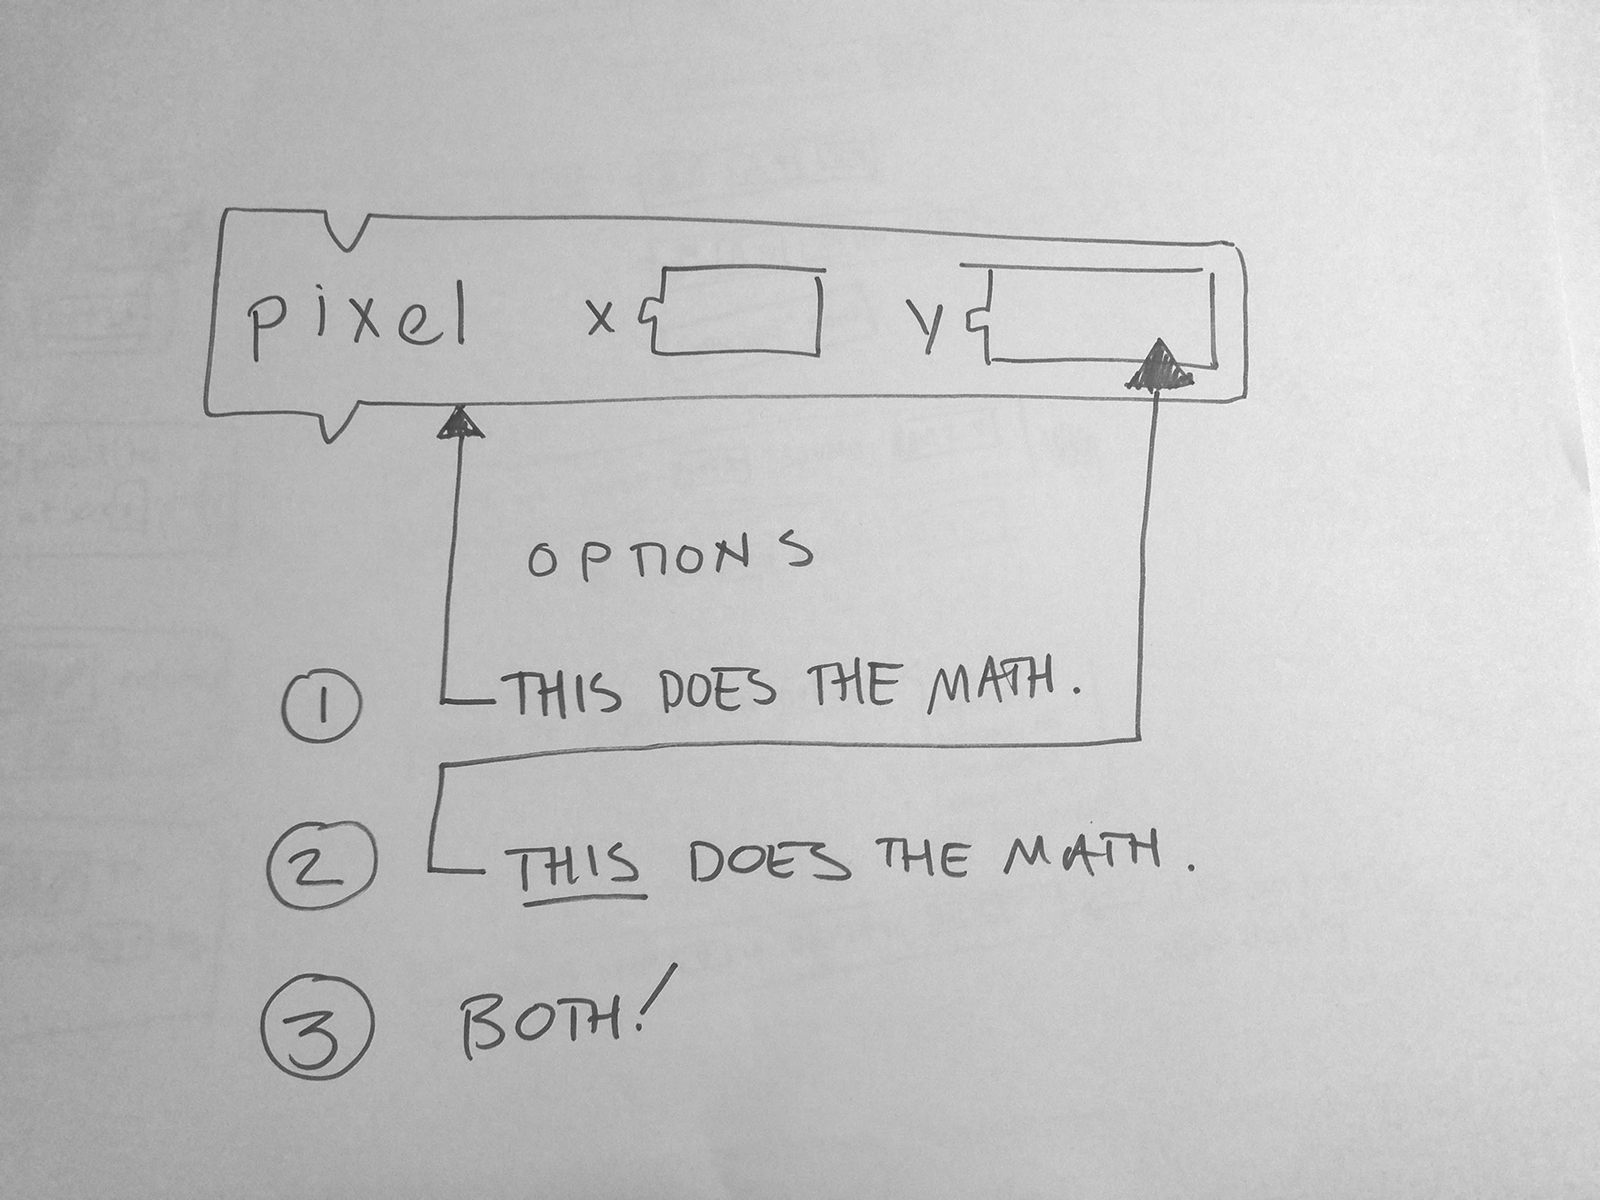 pixel x y
OPTIONS
1 THIS DOES THE MATH.
2 THIS DOES THE MATH.
3 BOTH!